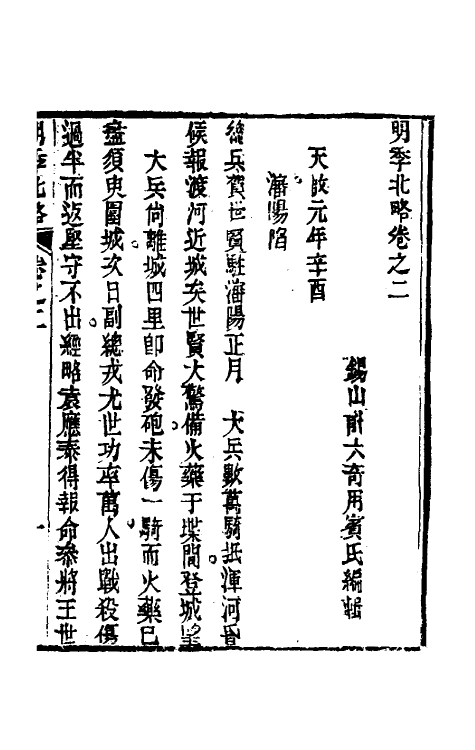 明季北略卷之二
錫山計六奇用賓氏編輯
天啟元年辛酉
瀋陽陷
總兵賀世賢駐瀋陽正月 大兵數萬騎抵渾河
候報渡河近城矣世賢大驚備火藥于堞間登城望
大兵尚離城四里卽命發砲未傷一騎而火藥已
盡須臾圍城次日副總戎尤世功率萬人出戰殺傷
過半而返堅守不出經略袁應泰得報命參將王世
明季北略 卷之二 一